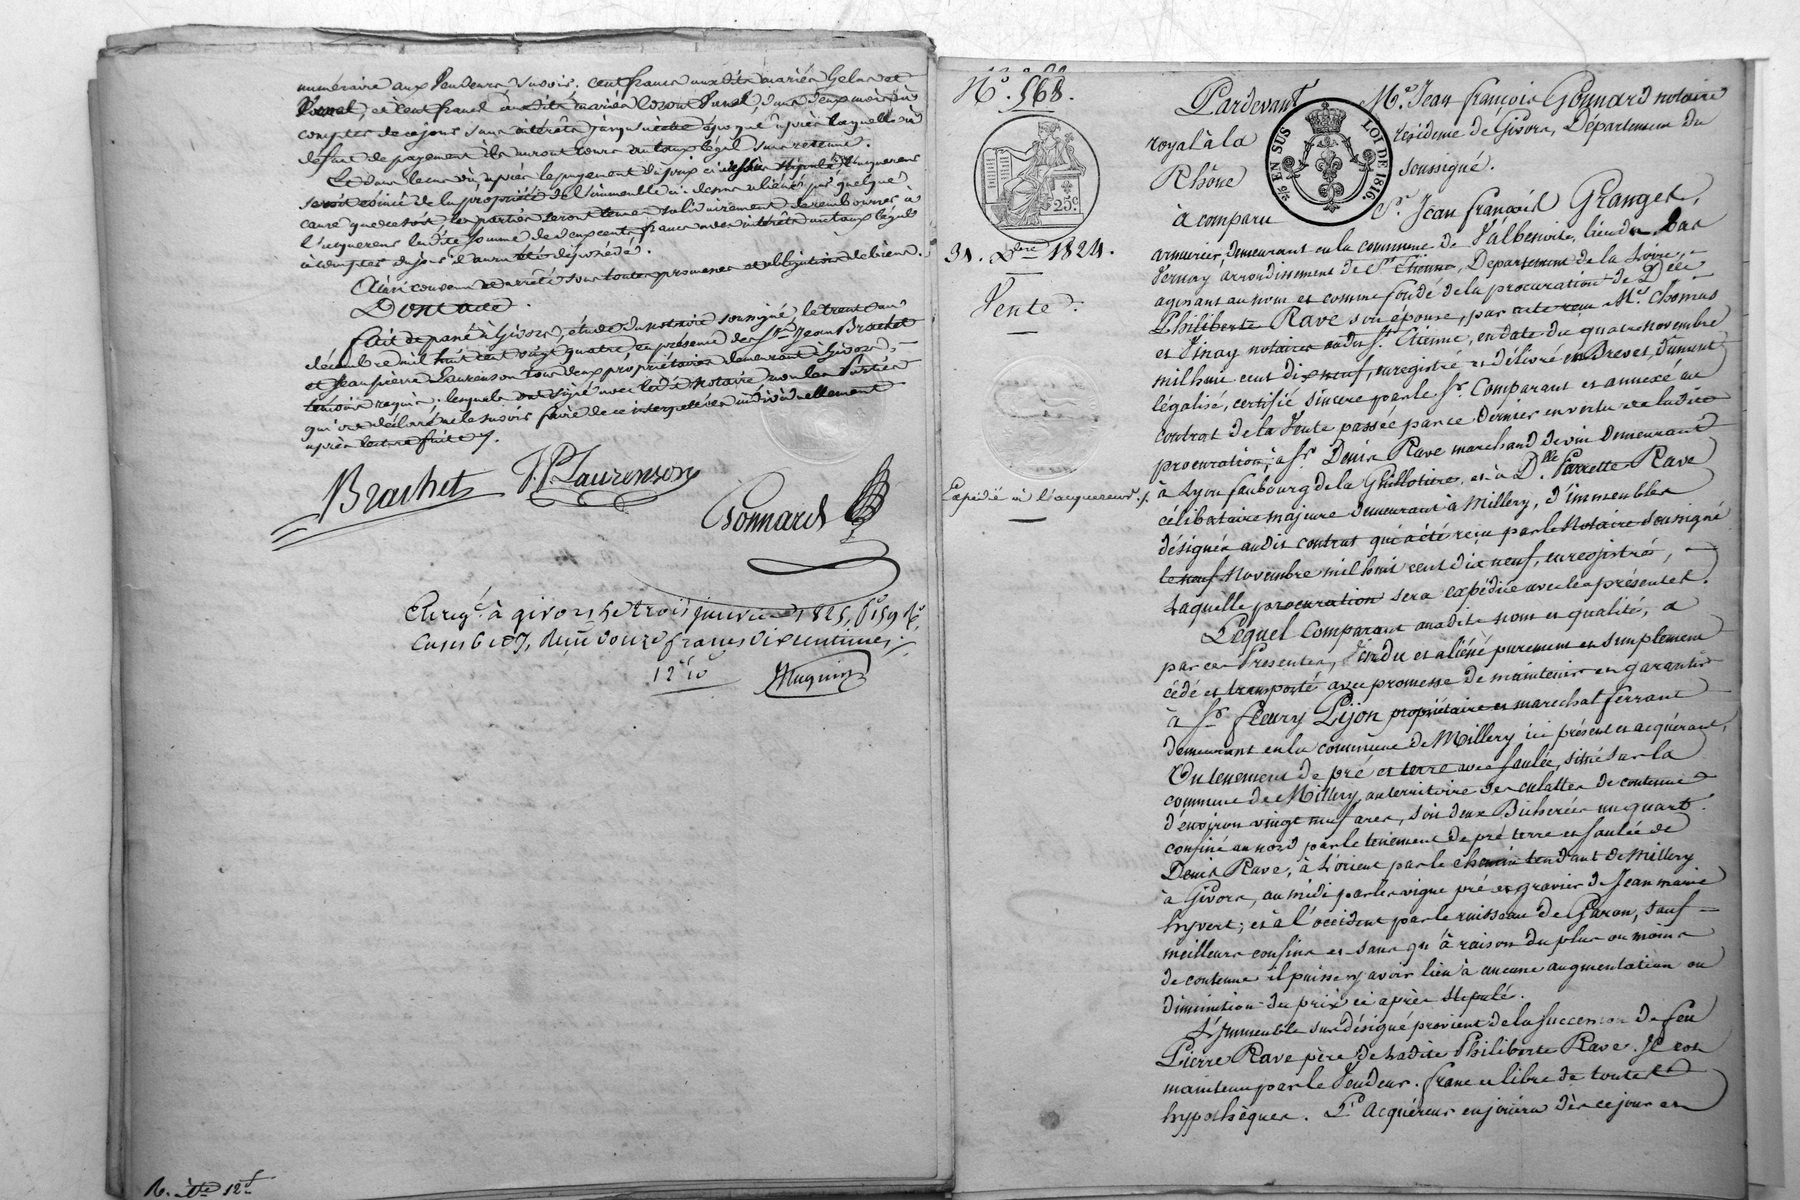 numéraire aux Vendeurs susdits. cent francs auxdits mariés Gelas et
et cent francs auxdits mariés dans deux mois à
compter de ce jour sans intérêts jusqu'à cette époque après laquelle à
défaut de payement ils auront cours au taux légal sans retenue.
Et dans le cas où après le payement du prix ci dessus stipulé l'acquéreur
seroit évincé de la propriété de l'immeuble ci dessus aliéné par quelque
cause que ce soit les parties seront tenues solidairement de rembourser à
l'acquéreur ladite somme de deux cent francs avec intérêts au taux légal
à compter du jour il aura été dépossédé.
Ainsi convenu et arrêté sous toutes promesses et obligations de biens.
Dont acte.
fait et passé à Givors, étude du notaire soussigné le trent un
décembre mil huit cent vingt quatre, en présence de Srs Jean Brachet
et Jean pierre Laurenson tous deux propriétaires demeurant à Givors,
témoins requis: lesquels ont signé avec ledit Notaire non les Parties
qui ont déclaré ne le savoir faire de ce interpellées individuellement
après lecture faite /.
Brachet J. P. Laurenson
Gonnard
Enregé à givors le trois janvier 1825, fo 159 Ro
Cases 6 et 7, Reçu douze francs dix centimes ./.
12f 10c
Huguin
12f
No. 568.
25c
31. Xbre 1824.
Vente.
Expédié à l'acquereur ./.
Pardevant Me Jean françois Gonnard notaire
royal à la résidence de Givors, Département du
Rhône soussigné.
25e EN SUS LOI DE 1816
à comparu Sr Jean françois Granger,
armurier demeurant en la commune de Valbenoite, lieu du Bas
Vernay arrondissement de St Etienne, Département de la Loire,
agissant au nom et comme fondé de la procuration de Delle
Philiberte Rave son épouse, par acte reçu Mes Thomas
et Vinay notaires audit St Etienne, en date du quatre novembre
mil huit cent dix neuf, enregistré et délivré en Brevet, dument
légalisé, certifié sincère par le Sr Comparant et annexé au
contrat de la Vente passée par ce dernier en vertu de ladite
procuration, à Sr Denis Rave marchand de vin demeurant
à Lyon faubourg de la Guillotière, et à Dlle Pierrette Rave
célibataire majeure demeurant à Millery, d'immeubles
désignés audit contrat qui a été reçu par le Notaire soussigné
le neuf Novembre mil huit cent dix neuf, enregistré,
laquelle procuration sera expédiée avec les présentes.
Lequel Comparant auxdits nom et qualité, a
par ces Présentes, Vendu et aliéné purement et simplement
cédé et transporté avec promesse de maintenir et garantir
à Sr fleury Pijon propriétaire et marechal ferrant
demeurant en la commune de Millery ici présent et acquérant,
Un tenement de pré et terre avec saulée, situé sur la
commune de Millery, au territoire des culattes de contenue
d'environ vingt neuf ares, soit deux Bicherées un quart.
confiné au nord par le tenement de pré terre et saulée de
Denis Rave, à l'orient par le chemin tendant de Millery
à Givors, au midi par les vigne pré et gravier de Jean marie
hyvert; et à l'occident par le ruisseau de Garon, sauf
meilleurs confins et sans qu'à raison du plus ou moins
de contenue il puisse y avoir lieu à aucune augmentation ou
diminution du prix ci après stipulé.
L'Immeuble sus désigné provient de la succession de feu
Pierre Rave père de ladite Philiberte Rave. Il est
maintenu par le Vendeur. franc et libre de toutes
hypothèques. L'acquéreur en jouira dès ce jour et